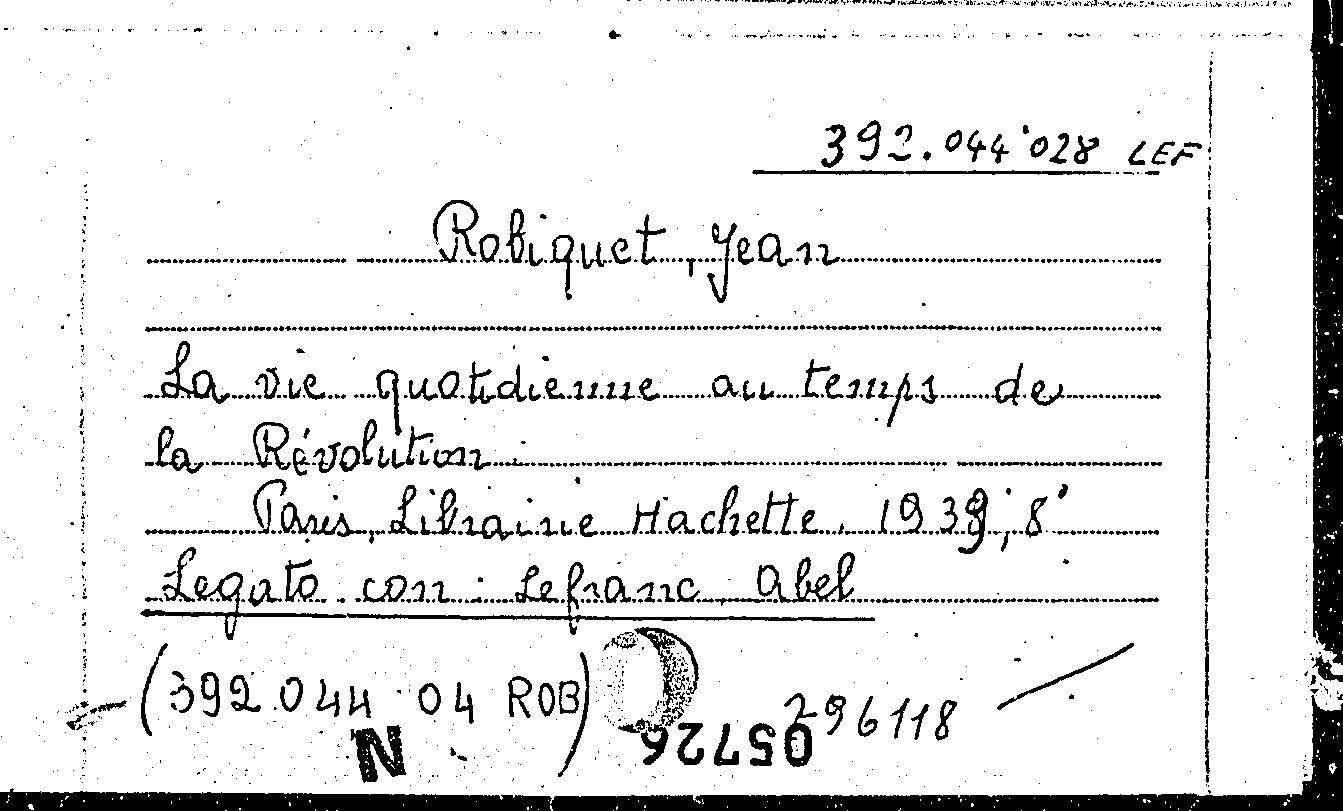 392.044'028 LEF
Robiquet, Jean
La vie quotidienne au temps de
la Révolution.
Paris, Librairie Hachette, 1939; 8°
Legato con: Lefranc, Abel
(392.044 04 ROB)
296118
N 05726